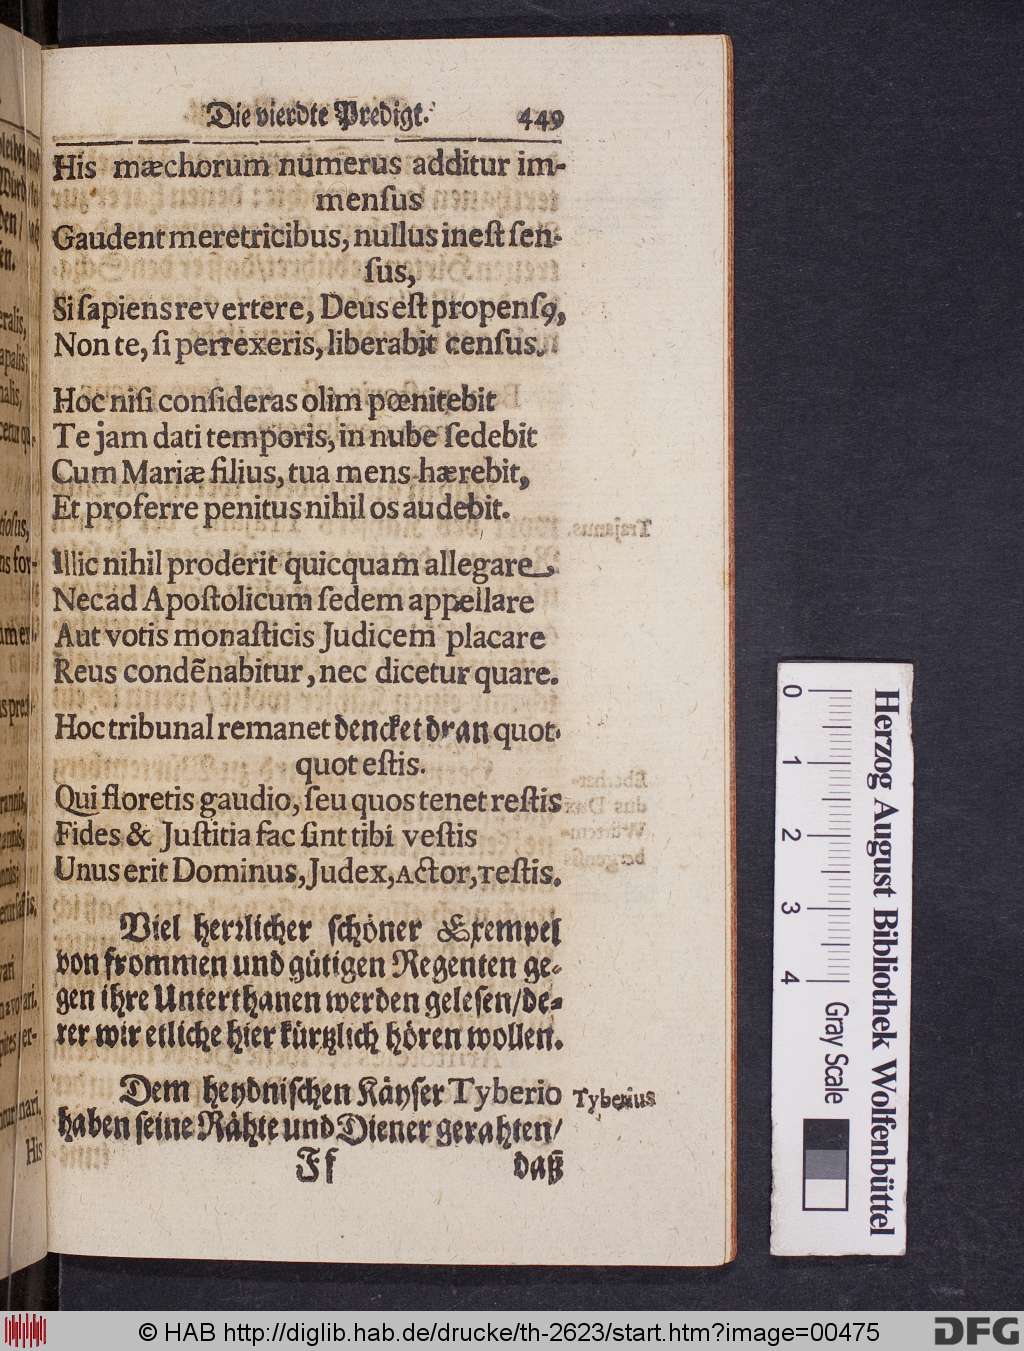 Die vierdte Predigt. 449
His mæchorum numerus additur im-
menſus
Gaudent meretricibus, nullus ineſt ſen-
ſus,
Si ſapiens revertere, Deus eſt propenſꝰ,
Non te, ſi perrexeris, liberabit cenſus.
Hoc niſi conſideras olim pœnitebit
Te jam dati temporis, in nube ſedebit
Cum Mariæ filius, tua mens hærebit,
Et proferre penitus nihil os audebit.
Illic nihil proderit quicquam allegare
Nec ad Apoſtolicum ſedem appellare
Aut votis monaſticis Judicem placare
Reus condẽnabitur, nec dicetur quare.
Hoc tribunal remanet dencket dran quot-
quot eſtis.
Qui floretis gaudio, ſeu quos tenet reſtis
Fides & Juſtitia fac ſint tibi veſtis
Unus erit Dominus, Judex, Actor, Teſtis.
Viel herꝛlicher ſchöner Exempel
von frommen und gütigen Regenten ge-
gen ihre Unterthanen werden geleſen/ de-
rer wir etliche hier kürtzlich hören wollen.
Dem heydniſchen Käyſer Tyberio
Tyberius
haben ſeine Rähte und Diener gerahten/
Ff daß
eralis,
apalis;
nalis,
tioſus,
ns for-
His
0 1 2 3 4
Gray Scale
Herzog August Bibliothek Wolfenbüttel
© HAB http://diglib.hab.de/drucke/th-2623/start.htm?image=00475
DFG